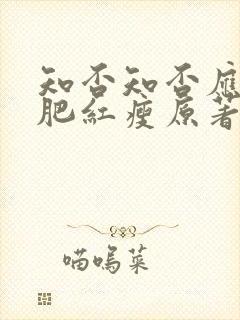 知否知否應
肥紅瘦原著
喵嗚菜